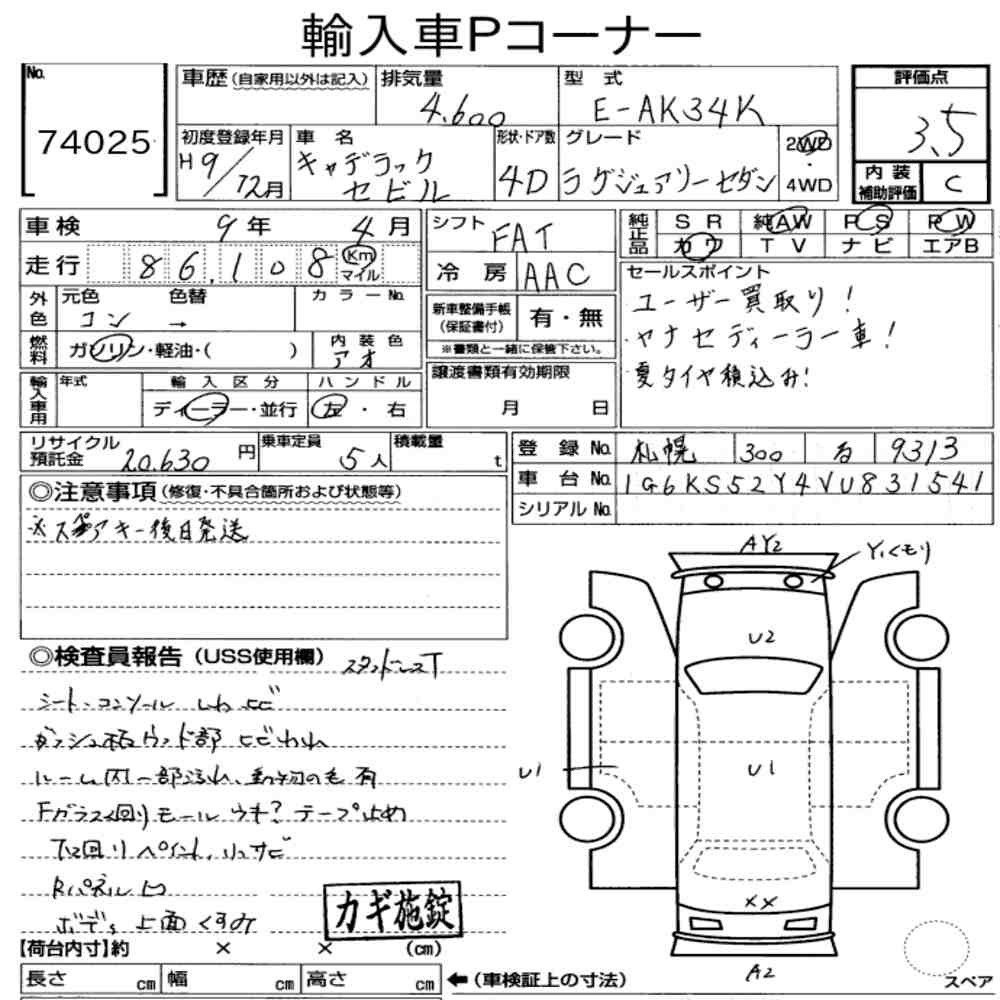 輸入車Pコーナー
No.
74025
車歴(自家用以外は記入)
排気量
4.600
型式
E-AK34K
評価点
3.5
内装補助評価
C
初度登録年月
H9/12月
車名
キャデラック
セビル
形状・ドア数
4D
グレード
ラグジュアリーセダン
2WD
・
4WD
車検
9年 4月
走行
86,108
Km
マイル
外色
元色
色替
カラーNo.
コン →
燃料
ガソリン・軽油・( )
内装色
アオ
輸入車用
年式
輸入区分
ハンドル
ディーラー・並行
左・右
シフト
FAT
冷房
AAC
新車整備手帳
(保証書付)
有・無
※書類と一緒に保管下さい。
譲渡書類有効期限
月 日
純正品
SR 純AW PS PW
カワ TV ナビ エアB
セールスポイント
ユーザー買取り!
ヤナセディーラー車!
夏タイヤ積込み!
リサイクル預託金
20,630円
乗車定員
5人
積載量
t
登録No.
札幌 300 る 9313
車台No.
1G6KS52Y4VU831541
シリアルNo.
◎注意事項(修復・不具合箇所および状態等)
※スペアキー後日発送
◎検査員報告(USS使用欄)
シート・コンソール しわ ヒビ
ダッシュ板ウッド部 ヒビわれ
ルーム内一部汚れ、動物の毛有
Fガラス回りモール ウキ? テープ止め
下回りペイント、小サビ
Rパネル凹
ボデー上面くすみ
カギ施錠
【荷台内寸】約 × × (cm)
長さ cm 幅 cm 高さ cm
←(車検証上の寸法)
AY2
Y1くもり
U2
U1
U1
XX
A2
スペア